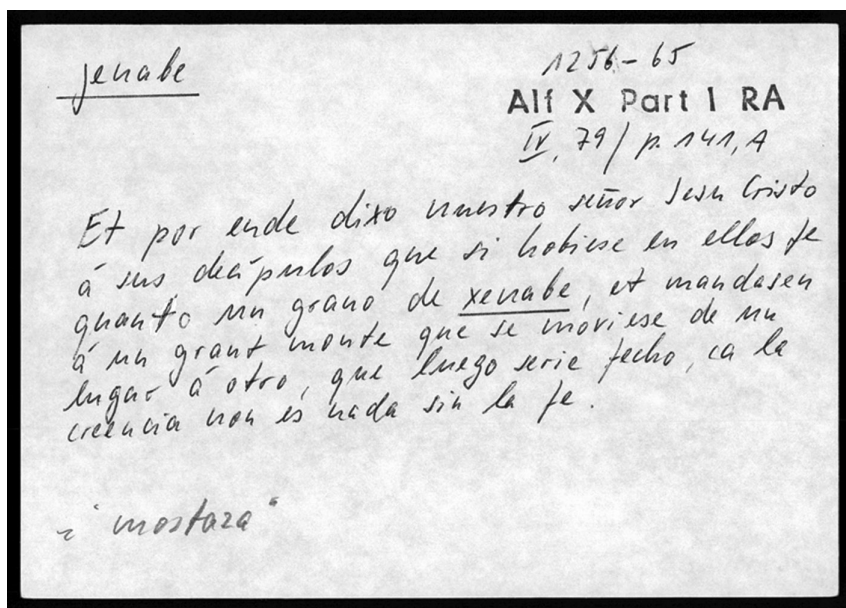 jenabe
1256-65
Alf X Part I RA
IV, 79 / p. 141, A
Et por ende dixo nuestro señor Jesu Cristo
á sus decípulos que si hobiese en ellos fe
quanto un grano de xenabe, et mandasen
á un grant monte que se moviese de un
lugar á otro, que luego serie fecho, ca la
creencia non es nada sin la fe.
"mostaza"